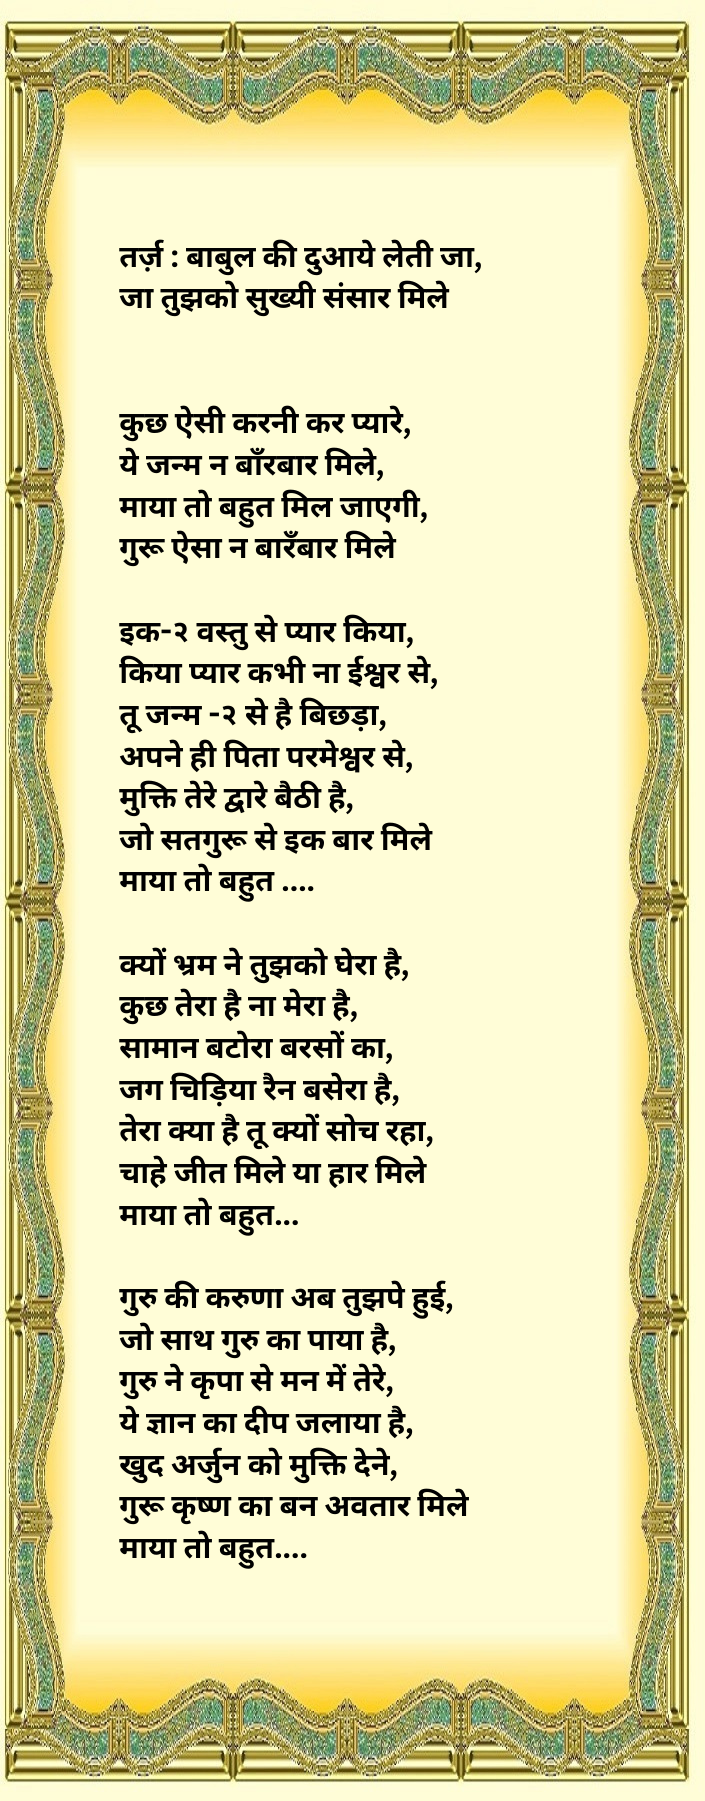 तर्ज़ : बाबुल की दुआये लेती जा,
जा तुझको सुख्यी संसार मिले
कुछ ऐसी करनी कर प्यारे,
ये जन्म न बाँरबार मिले,
माया तो बहुत मिल जाएगी,
गुरू ऐसा न बारँबार मिले
इक-२ वस्तु से प्यार किया,
किया प्यार कभी ना ईश्वर से,
तू जन्म -२ से है बिछड़ा,
अपने ही पिता परमेश्वर से,
मुक्ति तेरे द्वारे बैठी है,
जो सतगुरू से इक बार मिले
माया तो बहुत ....
क्यों भ्रम ने तुझको घेरा है,
कुछ तेरा है ना मेरा है,
सामान बटोरा बरसों का,
जग चिड़िया रैन बसेरा है,
तेरा क्या है तू क्यों सोच रहा,
चाहे जीत मिले या हार मिले
माया तो बहुत...
गुरु की करुणा अब तुझपे हुई,
जो साथ गुरु का पाया है,
गुरु ने कृपा से मन में तेरे,
ये ज्ञान का दीप जलाया है,
खुद अर्जुन को मुक्ति देने,
गुरू कृष्ण का बन अवतार मिले
माया तो बहुत....